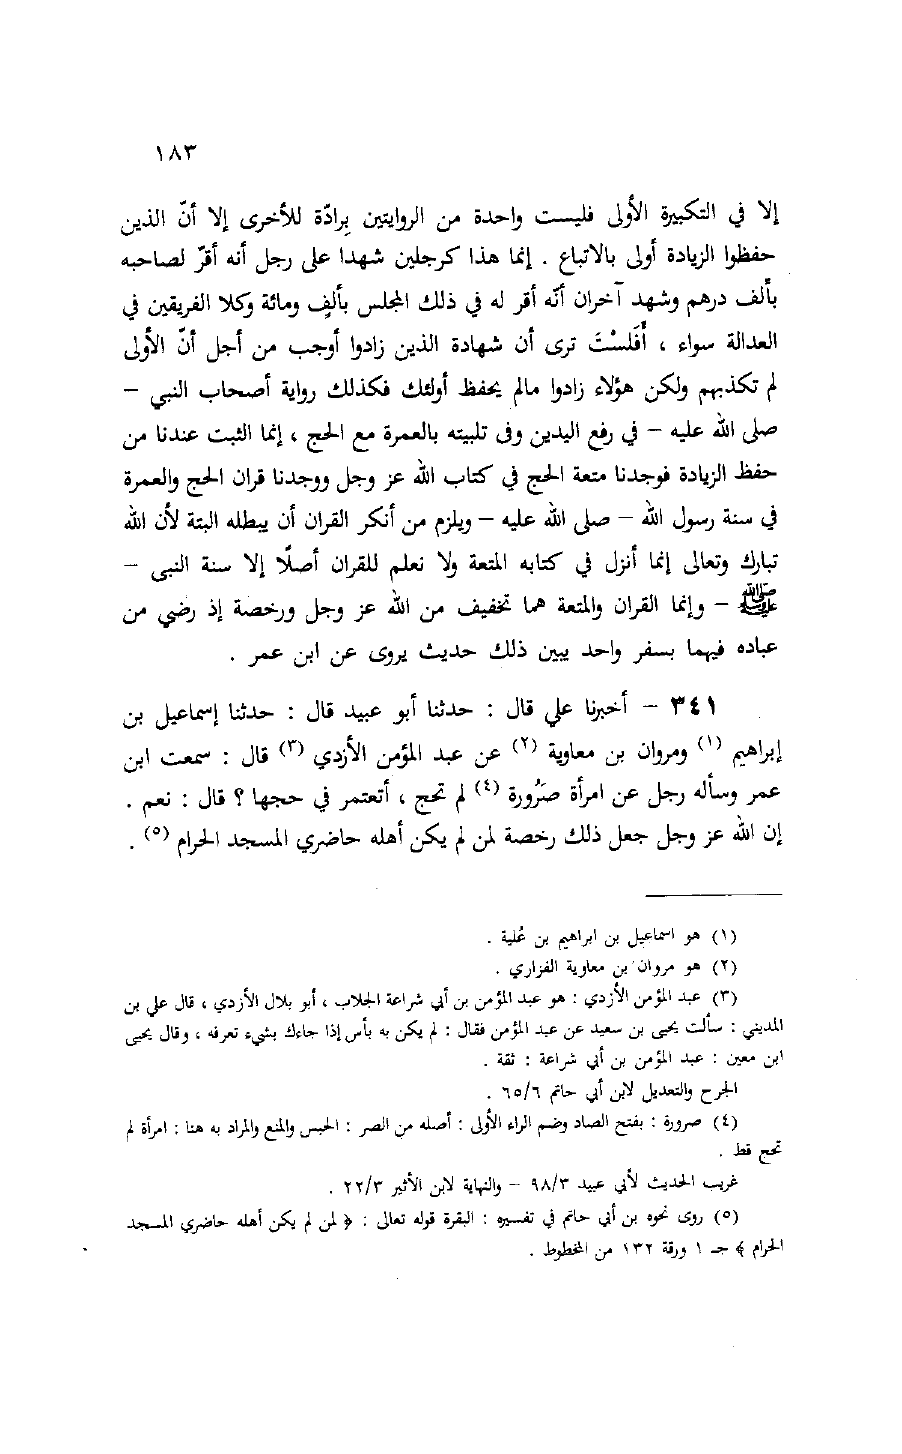 ١٨٣
إلا في التكبيرة الأولى فليست واحدة من الروايتين بِرادّة للأخرى إلا أنّ الذين
حفظوا الزيادة أولى بالاتباع . إنما هذا كرجلين شهدا على رجل أنه أقرّ لصاحبه
بألف درهم وشهد آخران أنّه أقر له في ذلك المجلس بألفٍ ومائة وكلا الفريقين في
العدالة سواء ، أَفَلسْتَ ترى أن شهادة الذين زادوا أوجب من أجل أنّ الأولى
لم تكذبهم ولكن هؤلاء زادوا مالم يحفظ أولئك فكذلك رواية أصحاب النبي –
صلى الله عليه – في رفع اليدين وفى تلبيته بالعمرة مع الحج ، إنما الثبت عندنا من
حفظ الزيادة فوجدنا متعة الحج في كتاب الله عز وجل ووجدنا قران الحج والعمرة
في سنة رسول الله – صلى الله عليه – ويلزم من أنكر القران أن يبطله البتة لأن الله
تبارك وتعالى إنما أنزل في كتابه المتعة ولا نعلم للقران أصلًا إلا سنة النبى –
ﷺ – وإنما القران والمتعة هما تخفيف من الله عز وجل ورخصة إذ رضي من
عباده فيهما بسفر واحد يبين ذلك حديث يروى عن ابن عمر .
٣٤١ – أخبرنا علي قال : حدثنا أبو عبيد قال : حدثنا إسماعيل بن
إبراهيم (١) ومروان بن معاوية (٢) عن عبد المؤمن الأزدي (٣) قال : سمعت ابن
عمر وسأله رجل عن امرأة صَرُورة (٤) لم تحج ، أتعتمر في حجها ؟ قال : نعم .
إن الله عز وجل جعل ذلك رخصة لمن لم يكن أهله حاضري المسجد الحرام (٥) .
(١) هو اسماعيل بن ابراهيم بن عُلية .
(٢) هو مروان بن معاوية الفزاري .
(٣) عبد المؤمن الأزدي : هو عبد المؤمن بن أبي شراعة الجلاب ، أبو بلال الأزدي ، قال علي بن
المديني : سألت يحيى بن سعيد عن عبد المؤمن فقال : لم يكن به بأس إذا جاءك بشيء تعرفه ، وقال يحيى
ابن معين : عبد المؤمن بن أبي شراعة : ثقة .
الجرح والتعديل لابن أبي حاتم ٦٥/٦ .
(٤) صرورة : بفتح الصاد وضم الراء الأولى : أصله من الصر : الحبس والمنع والمراد به هنا : امرأة لم
تحج قط .
غريب الحديث لأبي عبيد ٩٨/٣ – والنهاية لابن الأثير ٢٢/٣ .
(٥) روى نحوه بن أبي حاتم في تفسيره : البقرة قوله تعالى : ﴿ لمن لم يكن أهله حاضري المسجد
الحرام ﴾ جـ ١ ورقة ١٣٢ من المخطوط .